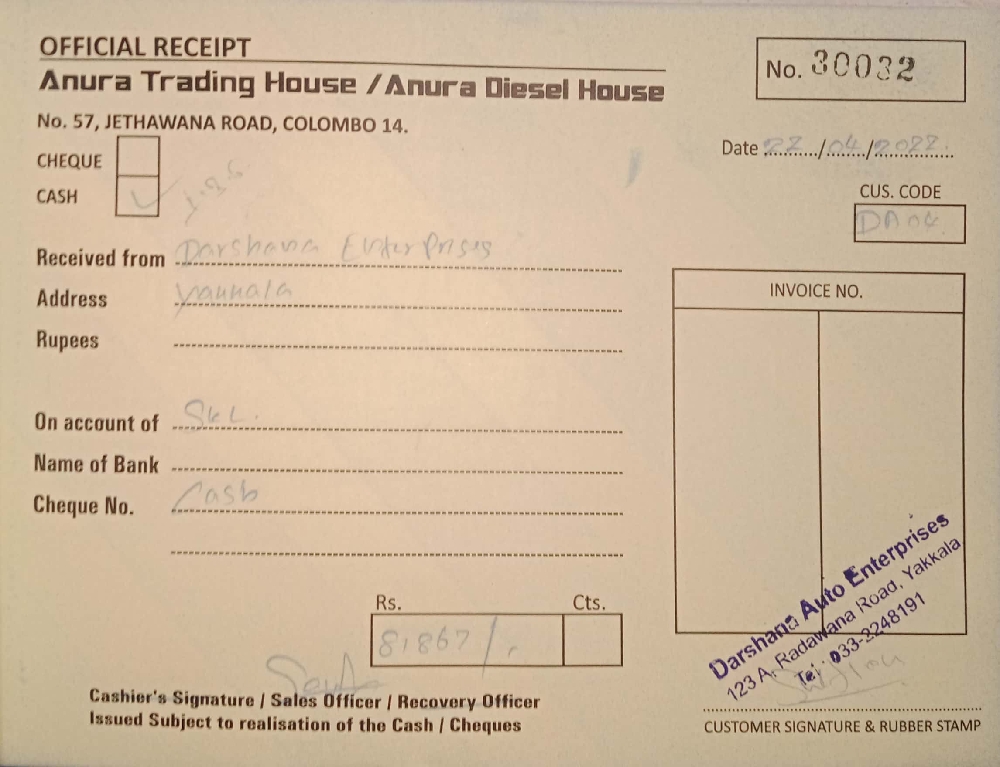 OFFICIAL RECEIPT
Anura Trading House / Anura Diesel House
No. 57, JETHAWANA ROAD, COLOMBO 14.
No. 30032
Date 22/04/2022
CHEQUE
CASH
CUS. CODE
DA04
Received from Darshana Enterprises
Address Yakkala
Rupees
INVOICE NO.
On account of SKL.
Name of Bank
Cheque No. Cash
Rs. Cts.
81867/.
Darshana Auto Enterprises
123 A, Radawana Road, Yakkala
Tel : 033-2248191
Cashier's Signature / Sales Officer / Recovery Officer
Issued Subject to realisation of the Cash / Cheques
CUSTOMER SIGNATURE & RUBBER STAMP